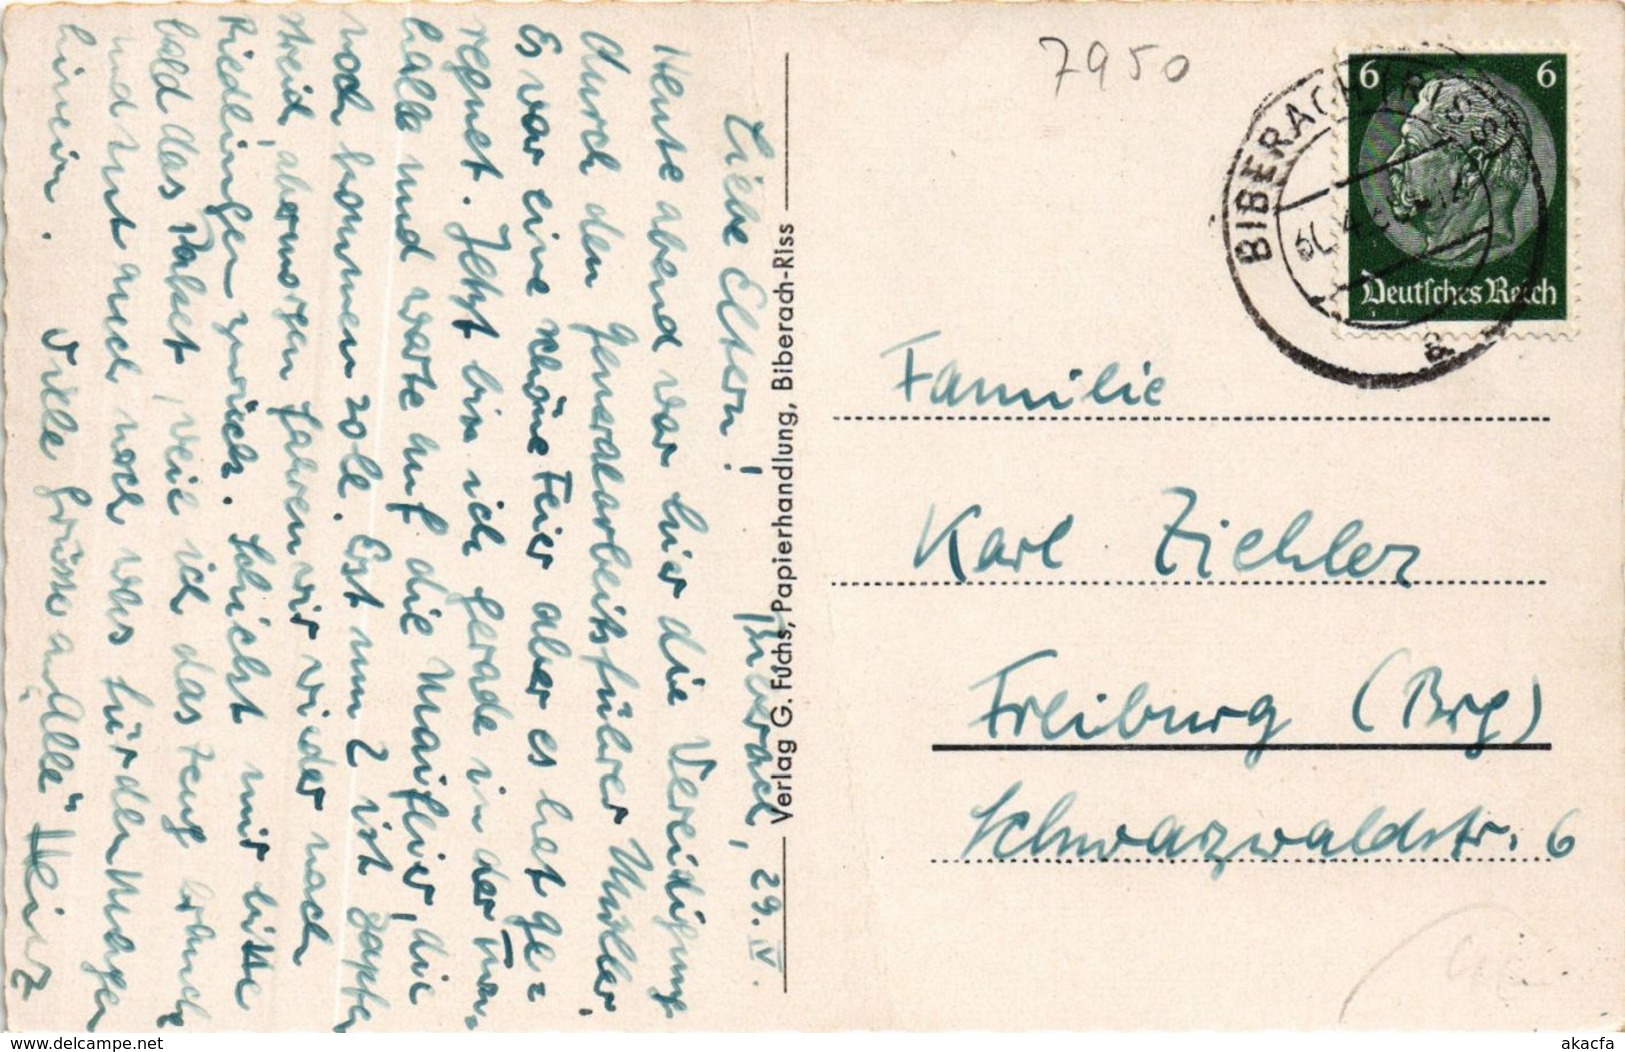 Biberach, 29. IV.
Liebe Eltern!
Heute abend war hier die Vereidigung
durch den Generalarbeitsführer Müller.
Es war eine schöne Feier aber es hat ge=
regnet. Jetzt bin ich gerade in der Turn-
halle und warte auf die Maifeier, die
noch kommen soll. Erst um 2 ist Zapfen
streich, aber morgen fahren wir wieder nach
Riedlingen zurück. Schickt mir bitte
bald das Paket, weil ich das Zeug brauch
und tut auch noch was für den Magen
hinein. Viele Grüsse an "Alle" Heinz
Verlag G. Fuchs, Papierhandlung, Biberach-Riss
7950
BIBERACH (RISS)
6 6
Deutsches Reich
a
Familie
Karl Ziehler
Freiburg (Brg)
Schwarzwaldstr. 6
www.delcampe.net
akacfa